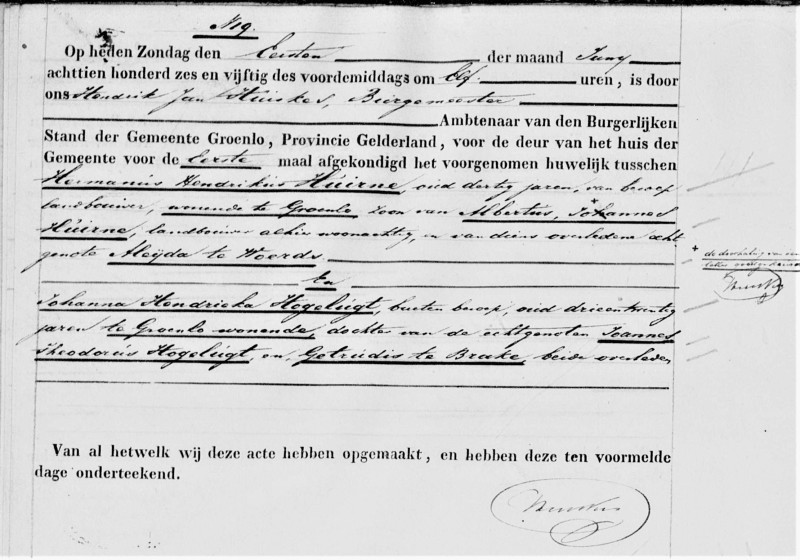 N 19.
Op heden Zondag den Eersten der maand Juny
achttien honderd zes en vijftig des voordemiddags om Elf uren, is door
ons Hendrik Jan Huiskes, Burgemeester
Ambtenaar van den Burgerlijken
Stand der Gemeente Groenlo, Provincie Gelderland, voor de deur van het huis der
Gemeente voor de Eerste maal afgekondigd het voorgenomen huwelijk tusschen
Hermanus Hendrikus Huirne, oud dertig jaren, van beroep
landbouwer, wonende te Groenlo zoon van Albertus, Johannes
Huirne, landbouwer alhier woonachtig, en van diens overledene echt
genote Aleijda te Woerds.
En
Johanna Hendrieka Hogelugt, buiten beroep, oud drieentwintig
jaren te Groenlo wonende, dochter van de echtgenoten Joannes
Theodorus Hogelugt, en, Getrudis te Brake, beide overleden
+ de doorhaling van een
letter
Huiskes
Van al hetwelk wij deze acte hebben opgemaakt, en hebben deze ten voormelde
dage onderteekend.
Huiskes